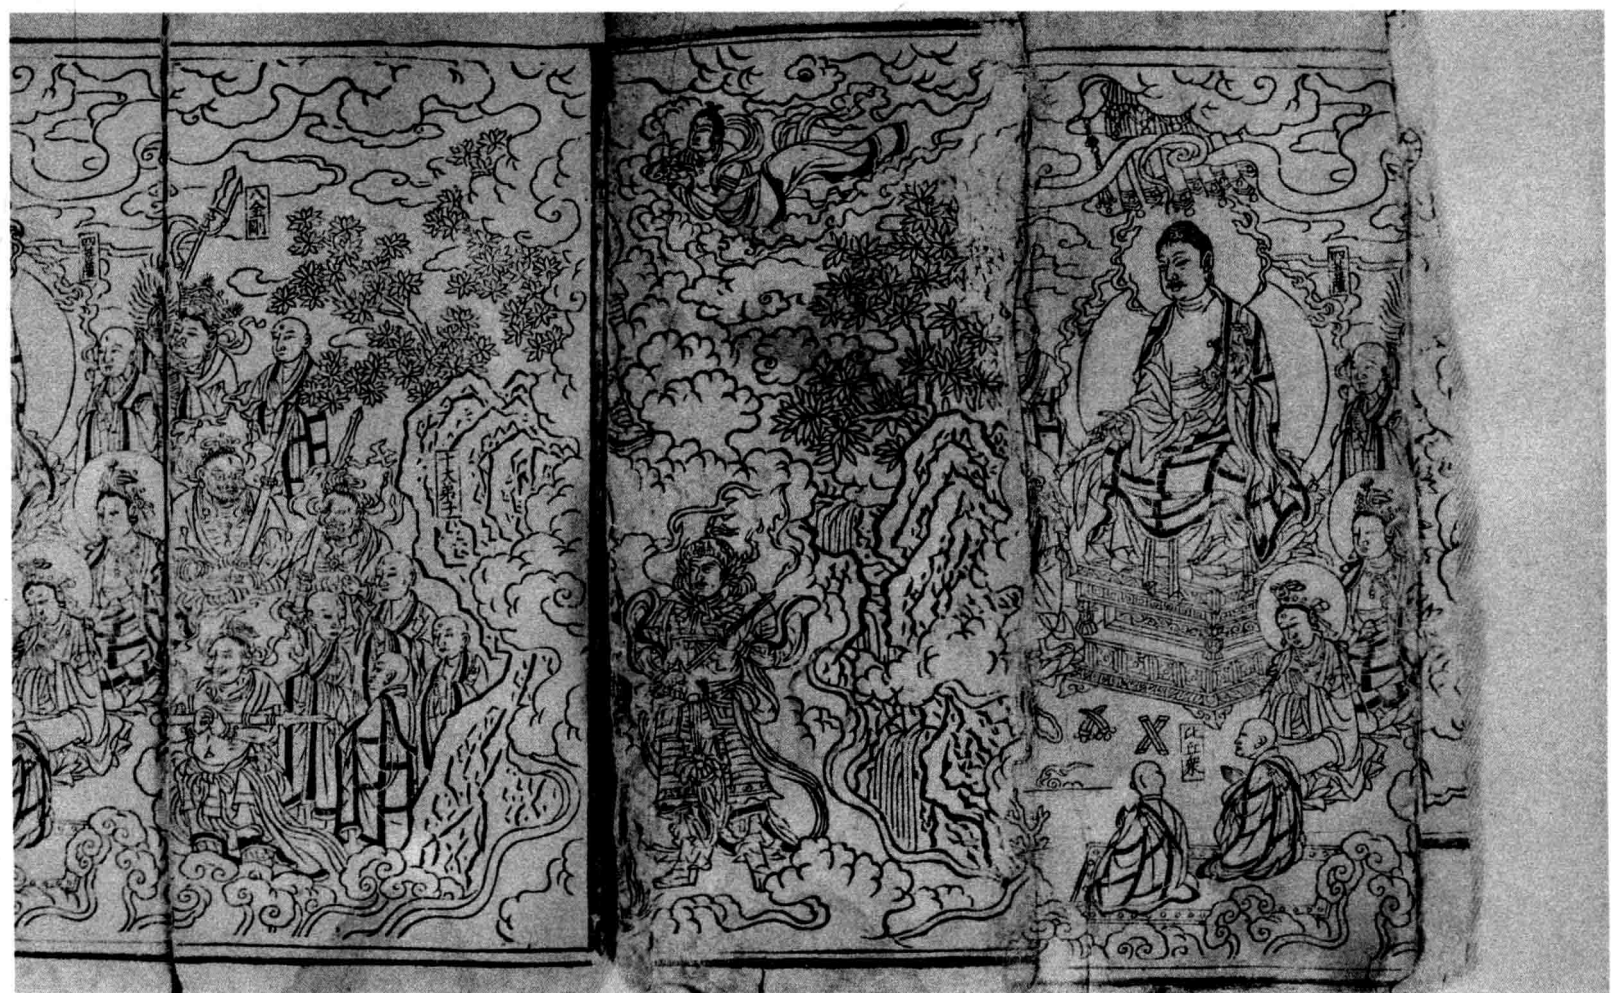 四菩薩
八金剛
十大弟子
四菩薩
比丘衆